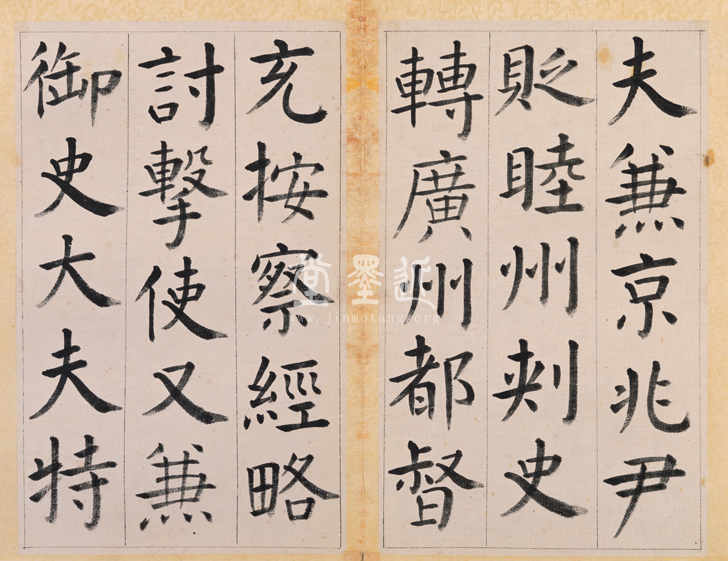 夫兼京兆尹
貶睦州刾史
轉廣州都督
充按察經略
討擊使又兼
御史大夫特
近墨堂
www.jinmotang.org